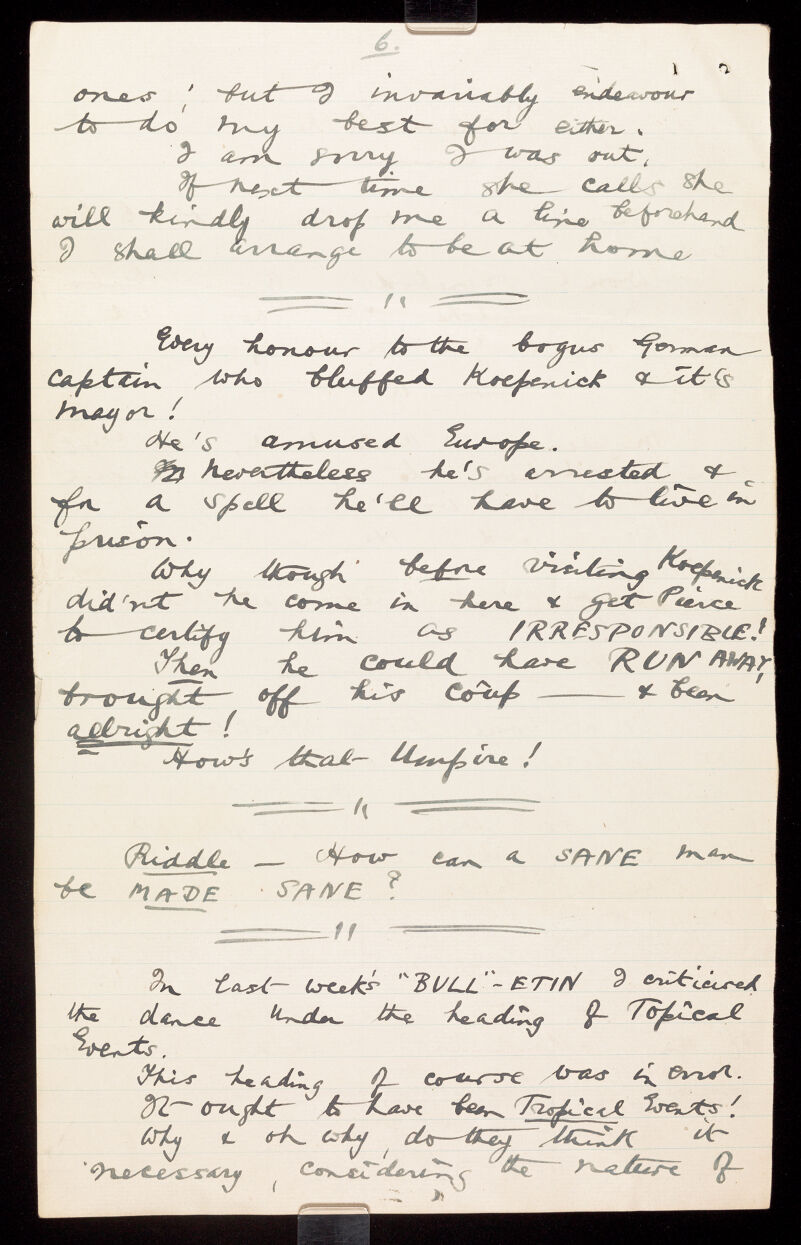 6.
ones; but I invariably endeavour
to do my best for either.
I am sorry I was out.
If next time she calls she
will kindly drop me a line beforehand
I shall arrange to be at home
Every honour to the bogus German
captain who bluffed Koepenick & it's
mayor!
He's amused Europe.
Nevertheless he's arrested &
for a spell he'll have to live in
prison.
Why though before visiting Koepenick
did'nt he come in here & get Pierce
to certify him as IRRESPONSIBLE!
Then he could have RUN AWAY,
brought off his coup —— & been
allright!
How's that Umpire!
Riddle — How can a SANE man
be MADE SANE?
In last week's "BULL"-ETIN I criticised
the dance under the heading of Topical
Events.
This heading of course was in error.
It ought to have been Tropical Events!
Why & oh why, do they think it
necessary, considering the nature of